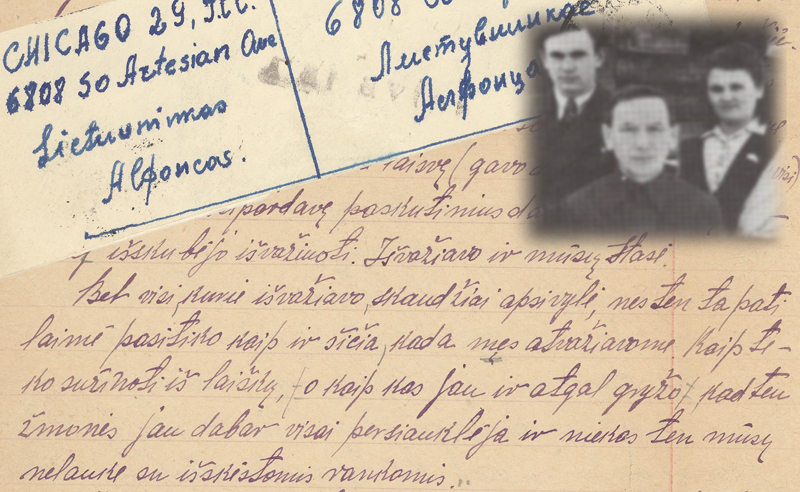 CHICAGO 29, Ill.
6808 So Artesian Ave
Lietuvninkas
Alfoncas.
6808 So
Листувнинкас
Алфонца
laisvę (gavo
pardavę paskutinius da
išskubėjo išvažiuoti. Išvažiavo ir mūsų Stasė.
Bet visi, kurie išvažiavo, skaudžiai apsivylė, nes ten ta pati
laimė pasitiko kaip ir šičia, kada męs atvažiavome. Kaip te-
ko sužinoti iš laiškų, o kaip kas jau ir atgal gryžo, kad ten
žmonės jau dabar visai persiauklėja ir niekas ten mūsų
nelaukė su išskėstomis rankomis.